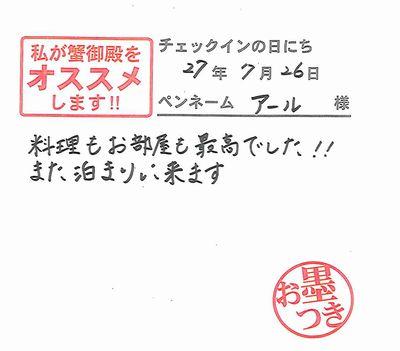 私が蟹御殿を
オススメ
します!!
チェックインの日にち
27年7月26日
ペンネーム アール 様
料理もお部屋も最高でした!!
また泊まりに来ます
お墨
つき